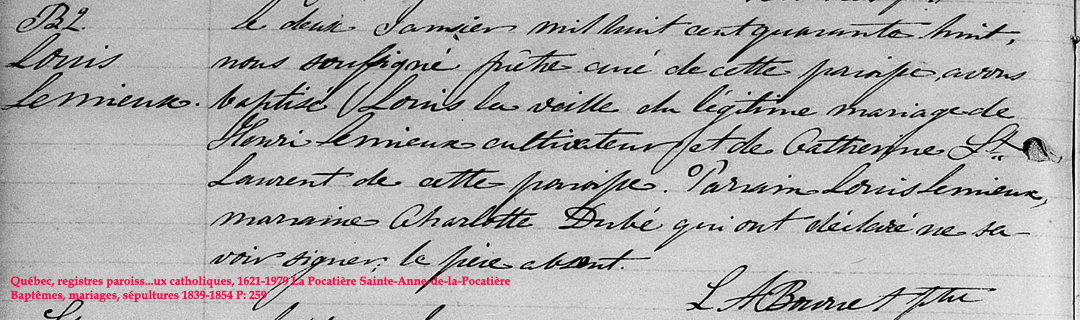 B2.
Louis
Lemieux.
le deux Janvier mil huit cent quarante huit,
nous soussigné prêtre curé de cette paroisse, avons
baptisé Louis la veille du légitime mariage de
Henri Lemieux cultivateur et de Catherine St.
Laurent de cette paroisse. Parrain Louis Lemieux,
marraine Charlotte Dubé qui ont déclaré ne sa-
voir signer; le père absent.
L A Bourret ptre
Québec, registres paroiss...ux catholiques, 1621-1979 La Pocatière Sainte-Anne-de-la-Pocatière
Baptêmes, mariages, sépultures 1839-1854 P: 259